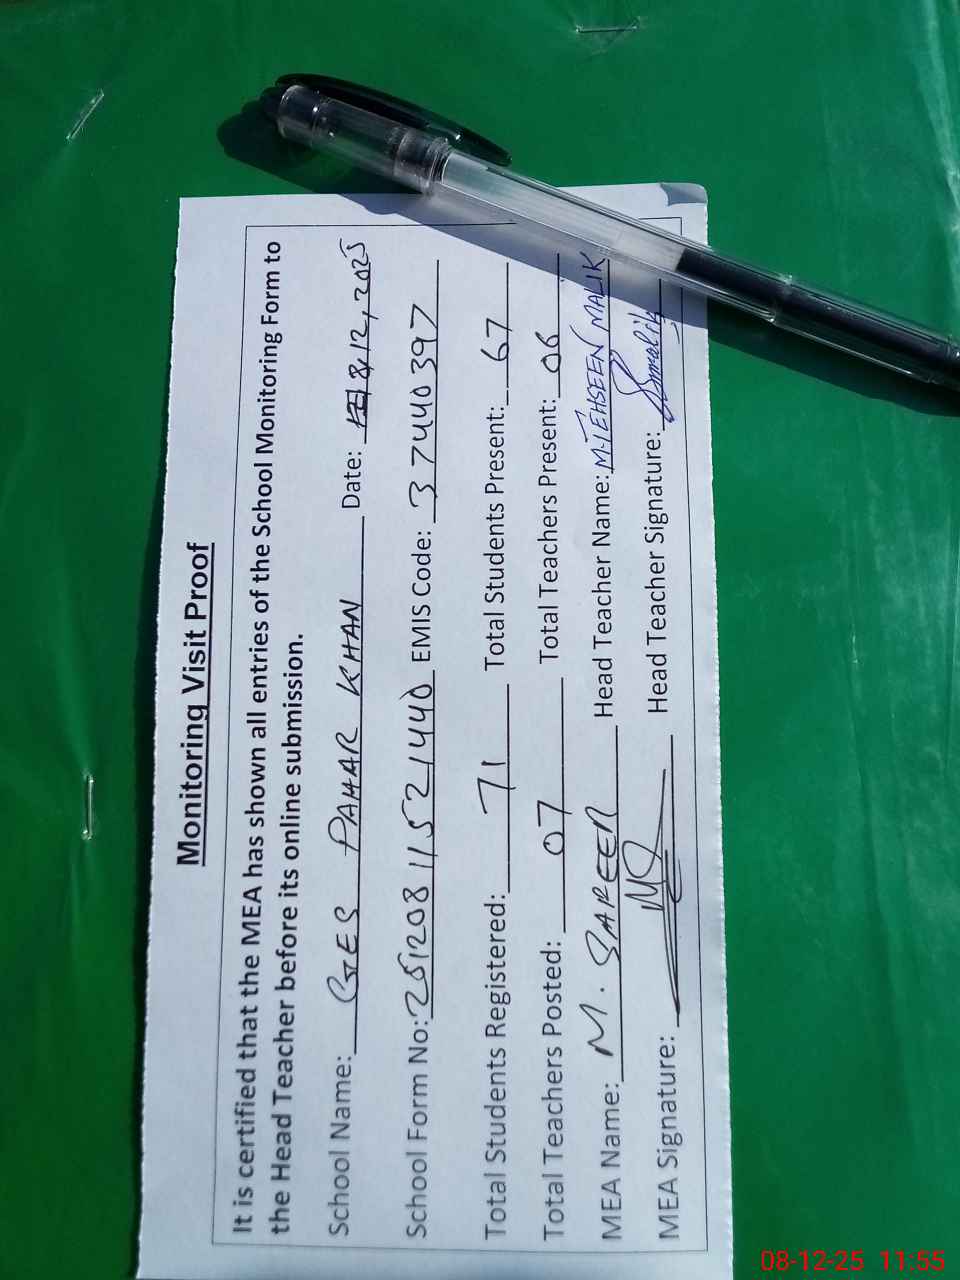 Monitoring Visit Proof
It is certified that the MEA has shown all entries of the School Monitoring Form to
the Head Teacher before its online submission.
School Name: GES PAHAR KHAN Date: 8,12,2025
School Form No: 251208115221440 EMIS Code: 37440397
Total Students Registered: 71 Total Students Present: 67
Total Teachers Posted: 07 Total Teachers Present: 06
MEA Name: M. SAFEER Head Teacher Name: M.TEHSEEN MALIK
MEA Signature: Head Teacher Signature:
08-12-25 11:55